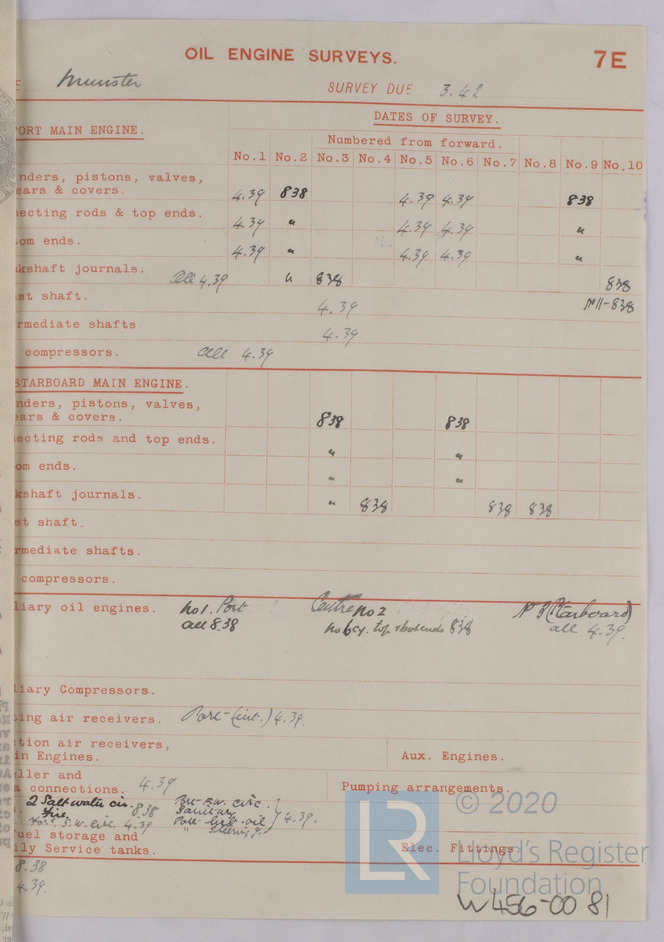 OIL ENGINE SURVEYS.
7E
E Munster
SURVEY DUE 3.42
DATES OF SURVEY.
PORT MAIN ENGINE.
Numbered from forward.
No.1 No.2 No.3 No.4 No.5 No.6 No.7 No.8 No.9 No.10
nders, pistons, valves,
ears & covers. 4.39 838 4.39 4.39 838
necting rods & top ends. 4.39 " 4.39 4.39 "
om ends. 4.39 " 4.39 4.39 "
kshaft journals. All 4.39 " 838 838
st shaft. 4.39 No 11-838
rmediate shafts 4.39
compressors. all 4.39
STARBOARD MAIN ENGINE.
nders, pistons, valves,
ears & covers. 838 838
ecting rods and top ends. " "
om ends. " "
kshaft journals. " 838 838 838
st shaft.
rmediate shafts.
compressors.
liary oil engines. No1. Port Centre No 2 (Starboard)
all 8.38 No 6 cy. top & bot ends 838 all 4.39.
liary Compressors.
ting air receivers. Port (int.) 4.39.
tion air receivers,
in Engines. Aux. Engines.
ller and
a connections. 4.39 Pumping arrangements.
2 Salt water cir. 8.38 Port F.W. circ.
Fire Sanitary 4.39.
S.W. circ 4.39 Port lub. oil
" Steering
uel storage and
ily Service tanks. Elec. Fittings.
8.38
4.39.
© 2020
LR
Lloyd's Register
Foundation
W456-00 81